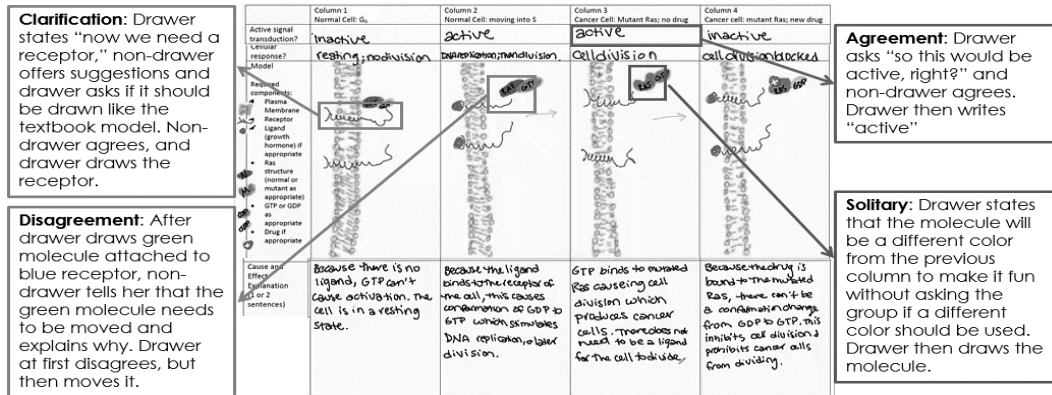 Clarification: Drawer
states “now we need a
receptor,” non-drawer
offers suggestions and
drawer asks if it should
be drawn like the
textbook model. Non-
drawer agrees, and
drawer draws the
receptor.
Disagreement: After
drawer draws green
molecule attached to
blue receptor, non-
drawer tells her that the
green molecule needs
to be moved and
explains why. Drawer
at first disagrees, but
then moves it.
Column 1
Normal Cell: G₀
Column 2
Normal Cell: moving into S
Column 3
Cancer Cell: Mutant Ras; no drug
Column 4
Cancer cell: mutant Ras; new drug
Active signal
transduction?
inactive
active
active
inactive
Cellular
response?
resting; no division
DNA replication, then division
Cell division
cell division blocked
Model
Required
components:
Plasma
Membrane
Receptor
Ligand
(growth
hormone) if
appropriate
Ras
structure
(normal or
mutant as
appropriate)
GTP or GDP
as
appropriate
Drug if
appropriate
RAS GTP
RAS
RAS
Cause and
Effect
Explanation
(1 or 2
sentences)
Because there is no
ligand, GTP can't
cause activation. The
cell is in a resting
state.
Because the ligand
binds to the receptor of
the cell, this causes
conformation of GDP to
GTP which stimulates
DNA replication, & later
division.
GTP binds to mutated
Ras causeing cell
division which
produces cancer
cells. There does not
need to be a ligand
for the cell to divide,
Because the drug is
bound to the mutated
Ras, there can't be
a conformation change
from GDP to GTP. This
inhibits cell division &
prohibits cancer cells
from dividing.
Agreement: Drawer
asks “so this would be
active, right?” and
non-drawer agrees.
Drawer then writes
“active”
Solitary: Drawer states
that the molecule will
be a different color
from the previous
column to make it fun
without asking the
group if a different
color should be used.
Drawer then draws the
molecule.